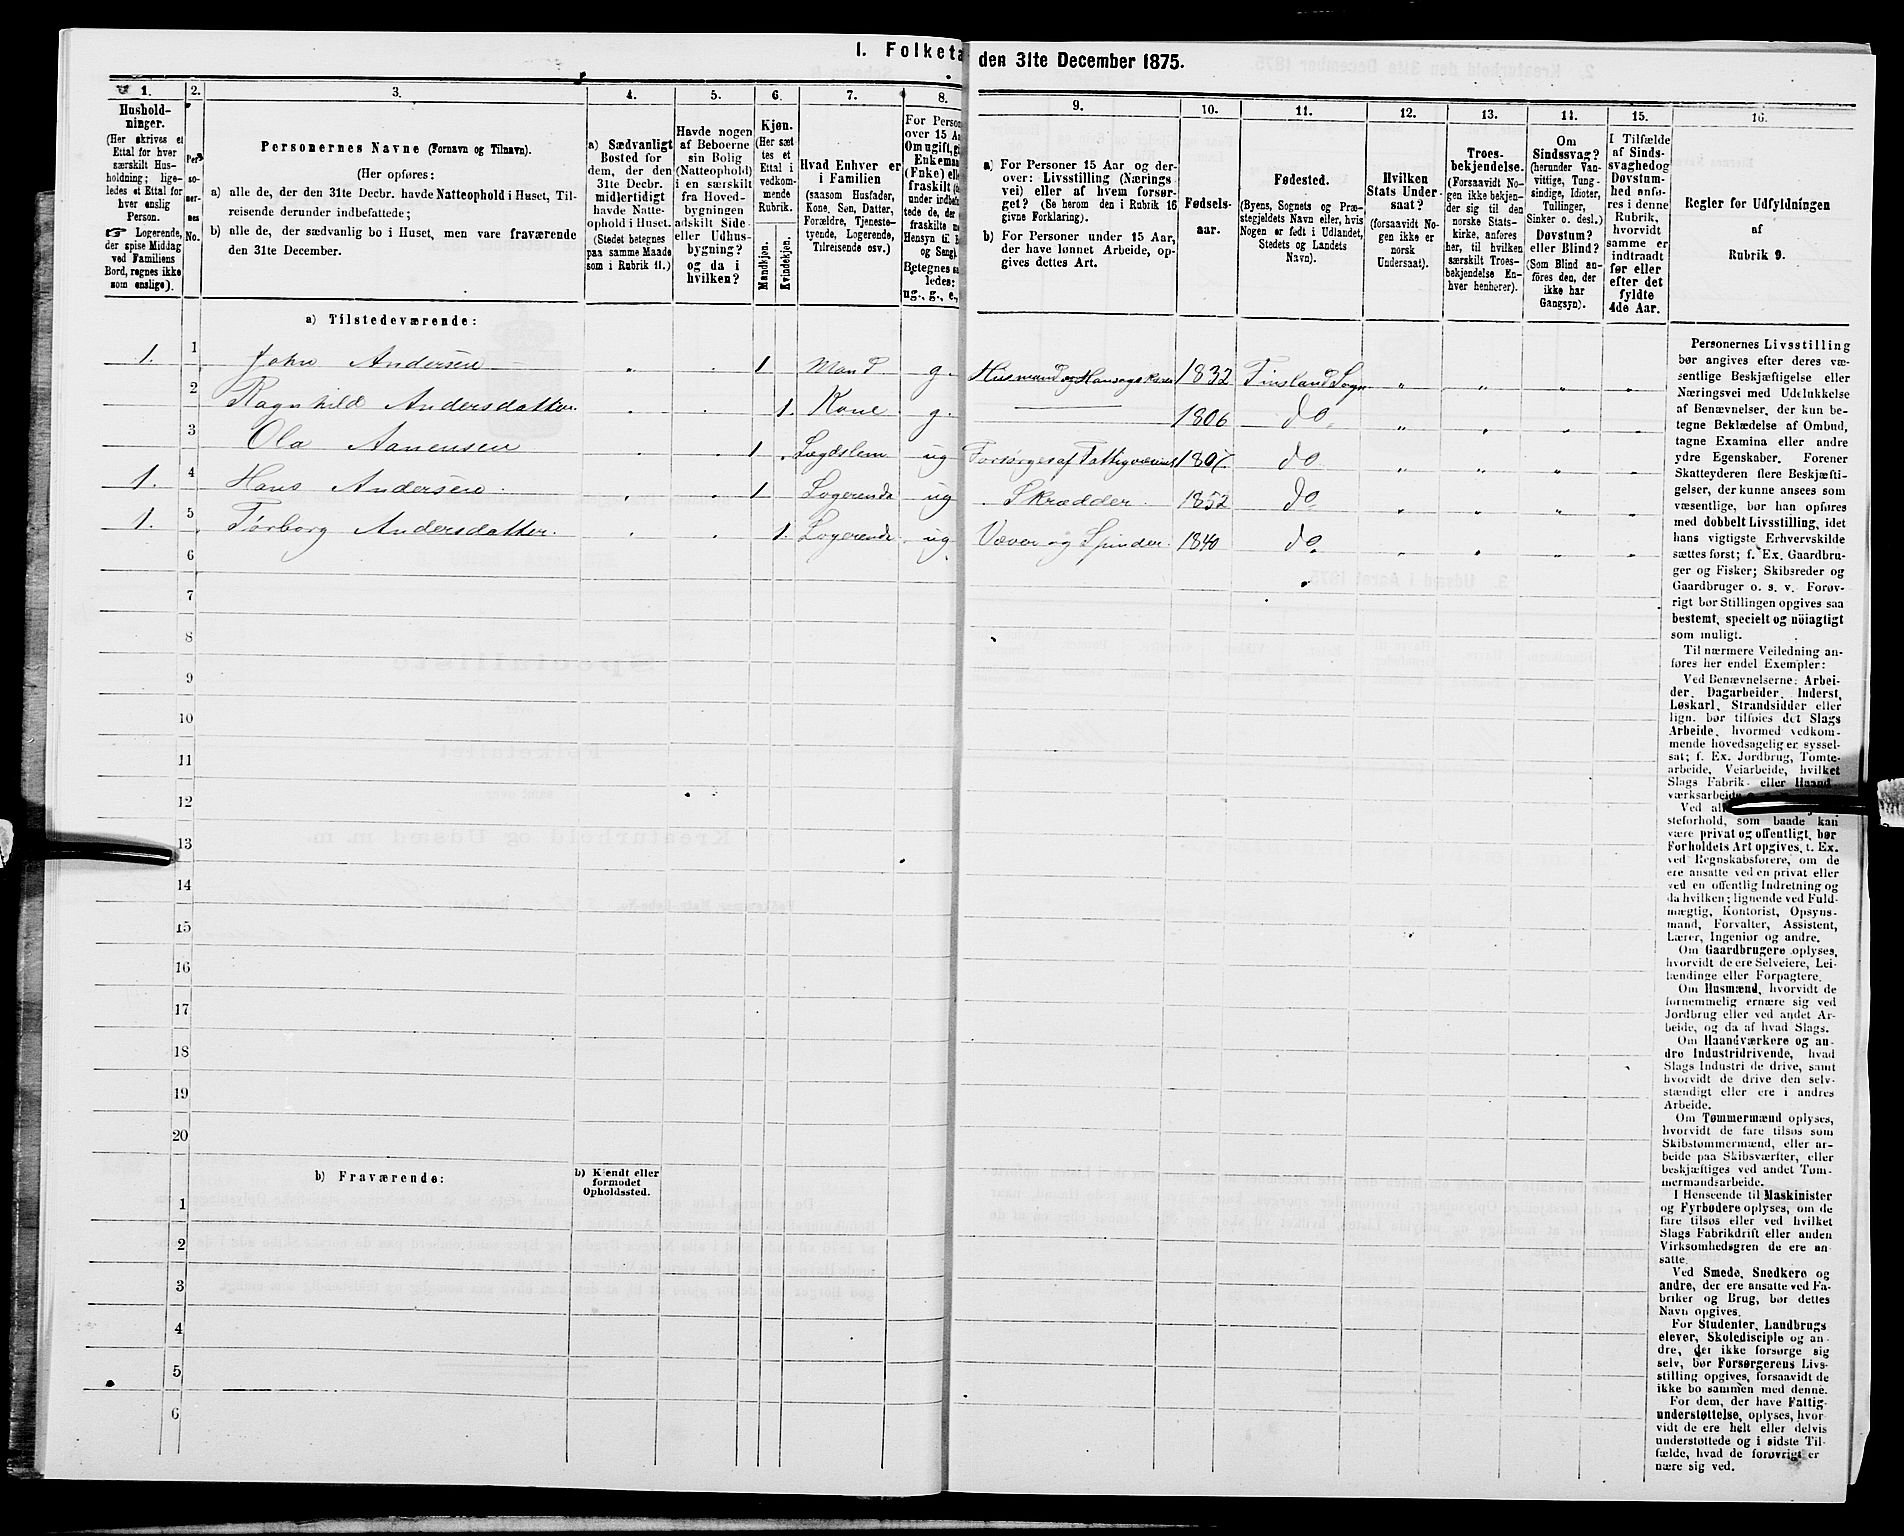 I. Folketa den 31te December 1875.
1. 2. 3. 4. 5. 6. 7. 8. 9. 10. 11. 12. 13. 14. 15. 16.
Hushold-
ninger.
(Her skrives et
Ettal for hver
særskilt Hus-
holdning; lige-
ledes et Ettal for
hver enslig
Person.
☞ Logerende,
der spise Middag
ved Familiens
Bord, regnes ikke
som enslige).
Per-
so-
ner-
nes
No.
Personernes Navne (Fornavn og Tilnavn).
(Her opføres:
a) alle de, der den 31te Decbr. havde Natteophold i Huset, Til-
reisende derunder indbefattede;
b) alle de, der sædvanlig bo i Huset, men vare fraværende
den 31te December.
a) Sædvanligt
Bosted for
dem, der den
31te Decbr.
midlertidigt
havde Natte-
ophold i Huset.
(Stedet betegnes
paa samme Maade
som i Rubrik 11.)
Havde nogen
af Beboerne
sin Bolig
(Natteophold)
i en særskilt
fra Hoved-
bygningen
adskilt Side-
eller Udhus-
bygning?
og da i
hvilken?
Kjøn.
(Her sæt
tes et
Ettal i
vedkom-
mende
Rubrik.
Mandkjøn.
Kvindekjøn.
Hvad Enhver er
i Familien
(saasom Husfader,
Kone, Søn, Datter,
Forældre, Tjeneste-
tyende, Logerende,
Tilreisende osv.)
For Person
over 15 Aa
Om ugift, gi
Enkemand
(Enke) elle
fraskilt
under indbef
tede de, der
fraskilte
Hensyn til B
og Seng).
Betegnes saa
ledes:
ug., g., e.,
a) For Personer 15 Aar og der-
over: Livsstilling (Nærings
vei) eller af hvem forsør-
get? (Se herom den i Rubrik 16
givne Forklaring).
b) For Personer under 15 Aar,
der have lønnet Arbeide, op-
gives dettes Art.
Fødsels-
aar.
Fødested.
(Byens, Sognets og Præ-
stegjeldets Navn eller, hvis
Nogen er født i Udlandet,
Stedets og Landets
Navn).
Hvilken
Stats Under-
saat?
(forsaavidt No-
gen ikke er
norsk
Undersaat).
Troes-
bekjendelse.
(Forsaavidt No-
gen ikke bekjen-
der sig til den
norske Stats-
kirke, anføres
her, til hvilken
særskilt Troes-
bekjendelse En-
hver henhører).
Om
Sindssvag?
(herunder Van-
vittige, Tung-
sindige, Idioter,
Tullinger,
Sinker o. desl.)
Døvstum?
eller Blind?
(Som Blind an-
føres den, der
ikke har
Gangsyn).
I Tilfælde
af Sinds-
svaghed og
Døvstum-
hed anfø-
res i denne
Rubrik,
hvorvidt
samme er
indtraadt
før eller
efter det
fyldte
4de Aar.
Regler for Udfyldningen
af
Rubrik 9.
a) Tilstedeværende:
1. 1 John Andersen " . 1 Mand g. Husmand og 1832 Finsland Sogn " " " "
2 Ragnhild Andersdatter . . 1. Kone g. — 1806 do. " " " "
3 Ola Aanensen . . 1 Lægdslem ug Forsørges af Fattigvæsenet do. " " " "
1. 4 Hans Andersen . . . 1 Logerende ug . Skrædder. 1852 do. " " " "
1. 5 Tørborg Andersdatter. . . 1. Logerende. ug Væver og Spinder. 1840 do. " " " "
6
7
8
9
10
11
12
13
14
15
16
17
18
19
20
b) Fraværende:
b) Kjendt eller
formodet
Opholdssted.
1
2
3
4
5
6
Personernes Livsstilling
bør angives efter deres væ-
sentlige Beskjæftigelse eller
Næringsvei med Udelukkelse
af Benævnelser, der kun be-
tegne Beklædelse af Ombud,
tagne Examina eller andre
ydre Egenskaber. Forener
Skatteyderen flere Beskjæfti-
gelser, der kunne ansees som
væsentlige, bør han opføres
med dobbelt Livsstilling, idet
hans vigtigste Erhvervskilde
sættes først; f. Ex. Gaardbru-
ger og Fisker; Skibsreder og
Gaardbruger o. s. v. Forøv-
rigt bør Stillingen opgives saa
bestemt, specielt og nöiagtigt
som muligt.
Til nærmere Veiledning an-
føres her endel Exempler:
Ved Benævnelserne: Arbei-
der, Dagarbeider, Inderst,
Løskarl, Strandsidder eller
lign. bør tilføies det Slags
Arbeide, hvormed vedkom-
mende hovedsagelig er syssel-
sat; f. Ex. Jordbrug, Tomte-
arbeide, Veiarbeide, hvilket
Slags Fabrik- eller Haand-
værksarbeide
Ved al
steforhold, som baade kan
være privat og offentligt, bør
Forholdets Art opgives, t. Ex.
ved Regnskabsførere, om de
ere ansatte ved en privat eller
ved en offentlig Indretning og
da hvilken; lignende ved Fuld-
mægtig, Kontorist, Opsyns-
mand, Forvalter, Assistent,
Lærer, Ingeniør og andre.
Om Gaardbrugere oplyses,
hvorvidt de ere Selveiere, Lei-
lændinge eller Forpagtere.
Om Husmænd, hvorvidt de
fornemmelig ernære sig ved
Jordbrug eller ved andet Ar-
beide, og da af hvad Slags.
Om Haandværkere og an-
dre Industridrivende, hvad
Slags Industri de drive, samt
hvorvidt de drive den selv-
stændigt eller ere i andres
Arbeide.
Om Tømmermænd oplyses,
hvorvidt de fare tilsøs som
Skibstømmermænd, eller ar-
beide paa Skibsværfter, eller
beskjæftiges ved andet Tøm-
mermandsarbeide.
I Henseende til Maskinister
og Fyrbødere oplyses, om de
fare tilsøs eller ved hvilket
Slags Fabrikdrift eller anden
Virksomhedsgren de ere an-
satte.
Ved Smede, Snedkere og
andre, der ere ansatte ved Fa-
briker og Brug, bør dettes
Navn opgives.
For Studenter, Landbrugs-
elever, Skoledisciple og an-
dre, der ikke forsørge sig
selv, bør Forsørgerens Livs-
stilling opgives, forsaavidt de
ikke bo sammen med denne.
For dem, der have Fattig-
understøttelse, oplyses, hvor-
vidt de ere helt eller delvis
understøttede og i sidste Til-
fælde, hvad de forøvrigt er
nære sig ved.